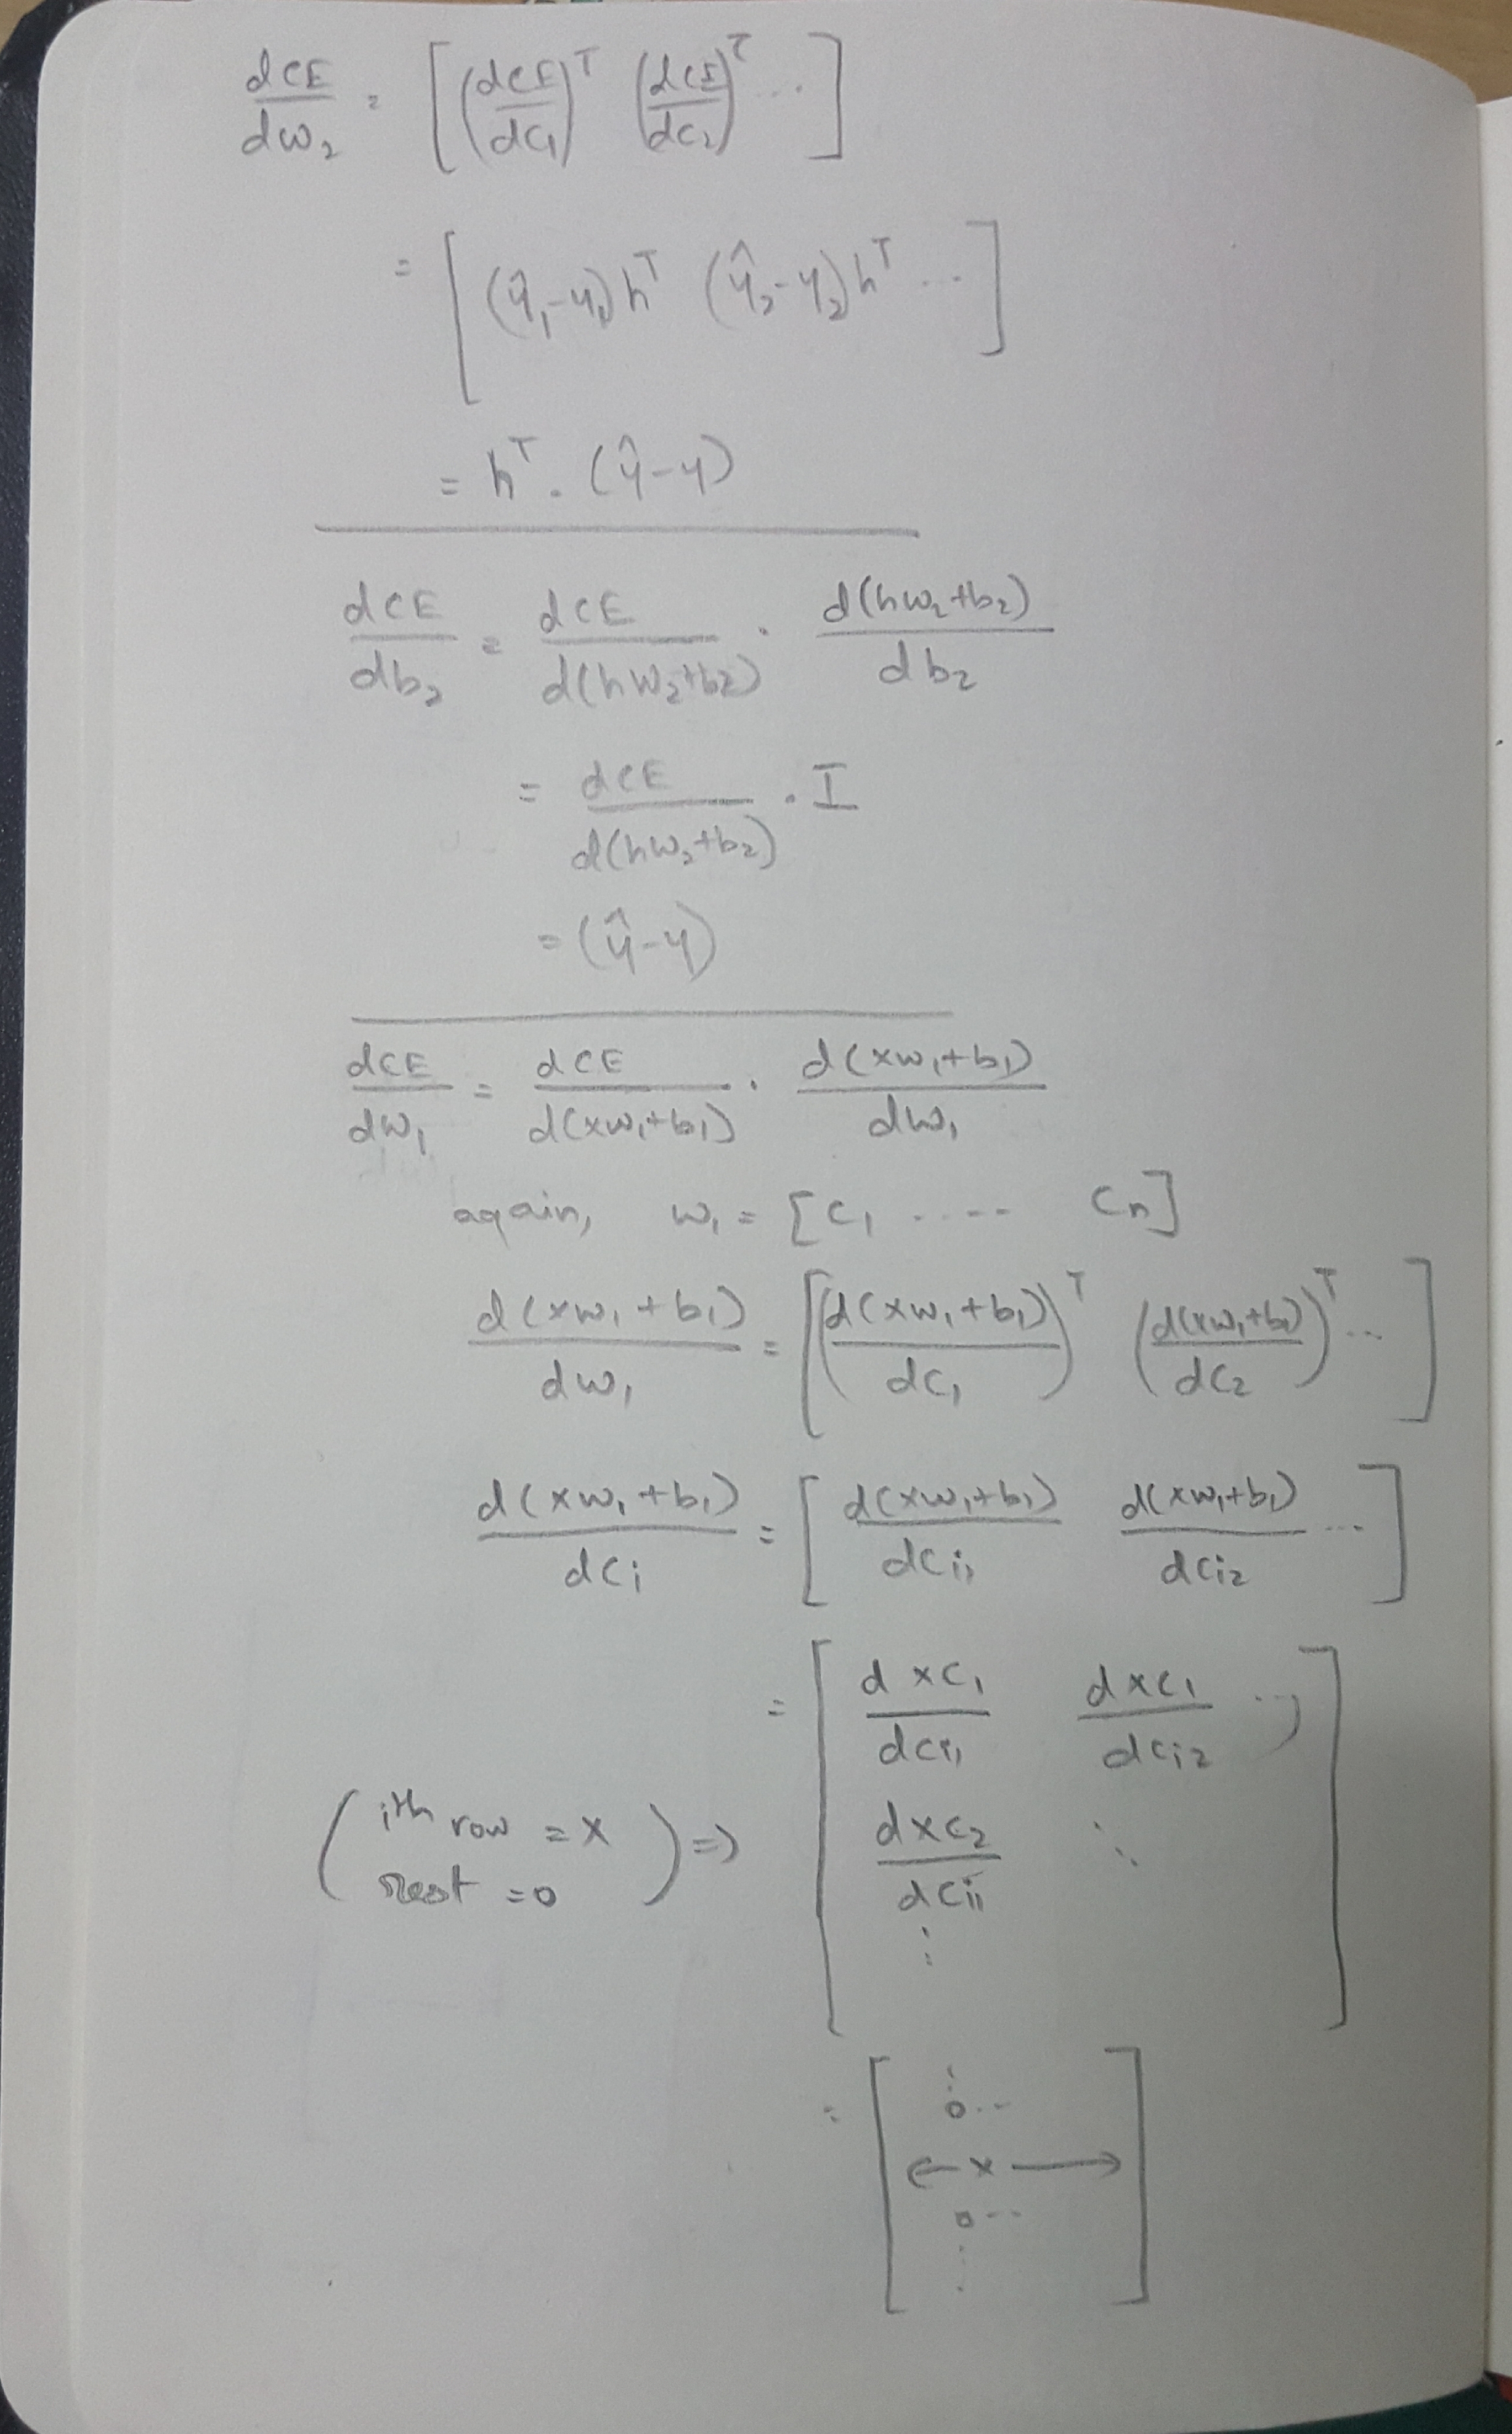 dCE/dw₂ = [(dCE/dc₁)ᵀ (dCE/dc₂)ᵀ ...]
= [(ŷ₁-y₁)hᵀ (ŷ₂-y₂)hᵀ ...]
= hᵀ . (ŷ-y)
dCE/db₂ = dCE/d(hw₂+b₂) . d(hw₂+b₂)/db₂
= dCE/d(hw₂+b₂) . I
= (ŷ-y)
dCE/dw₁ = dCE/d(xw₁+b₁) . d(xw₁+b₁)/dw₁
again, w₁ = [c₁ ..... cₙ]
d(xw₁+b₁)/dw₁ = [(d(xw₁+b₁)/dc₁)ᵀ (d(xw₁+b₁)/dc₂)ᵀ ...]
d(xw₁+b₁)/dcᵢ = [d(xw₁+b₁)/dcᵢ₁ d(xw₁+b₁)/dcᵢ₂ ...]
= [dxc₁/dcᵢ₁ dxc₁/dcᵢ₂ ...
(ith row = x
rest = 0) => dxc₂/dcᵢ₁ ⋱
⋮ ]
= [ ⋮
0 ...
← x →
0 ...
⋮ ]